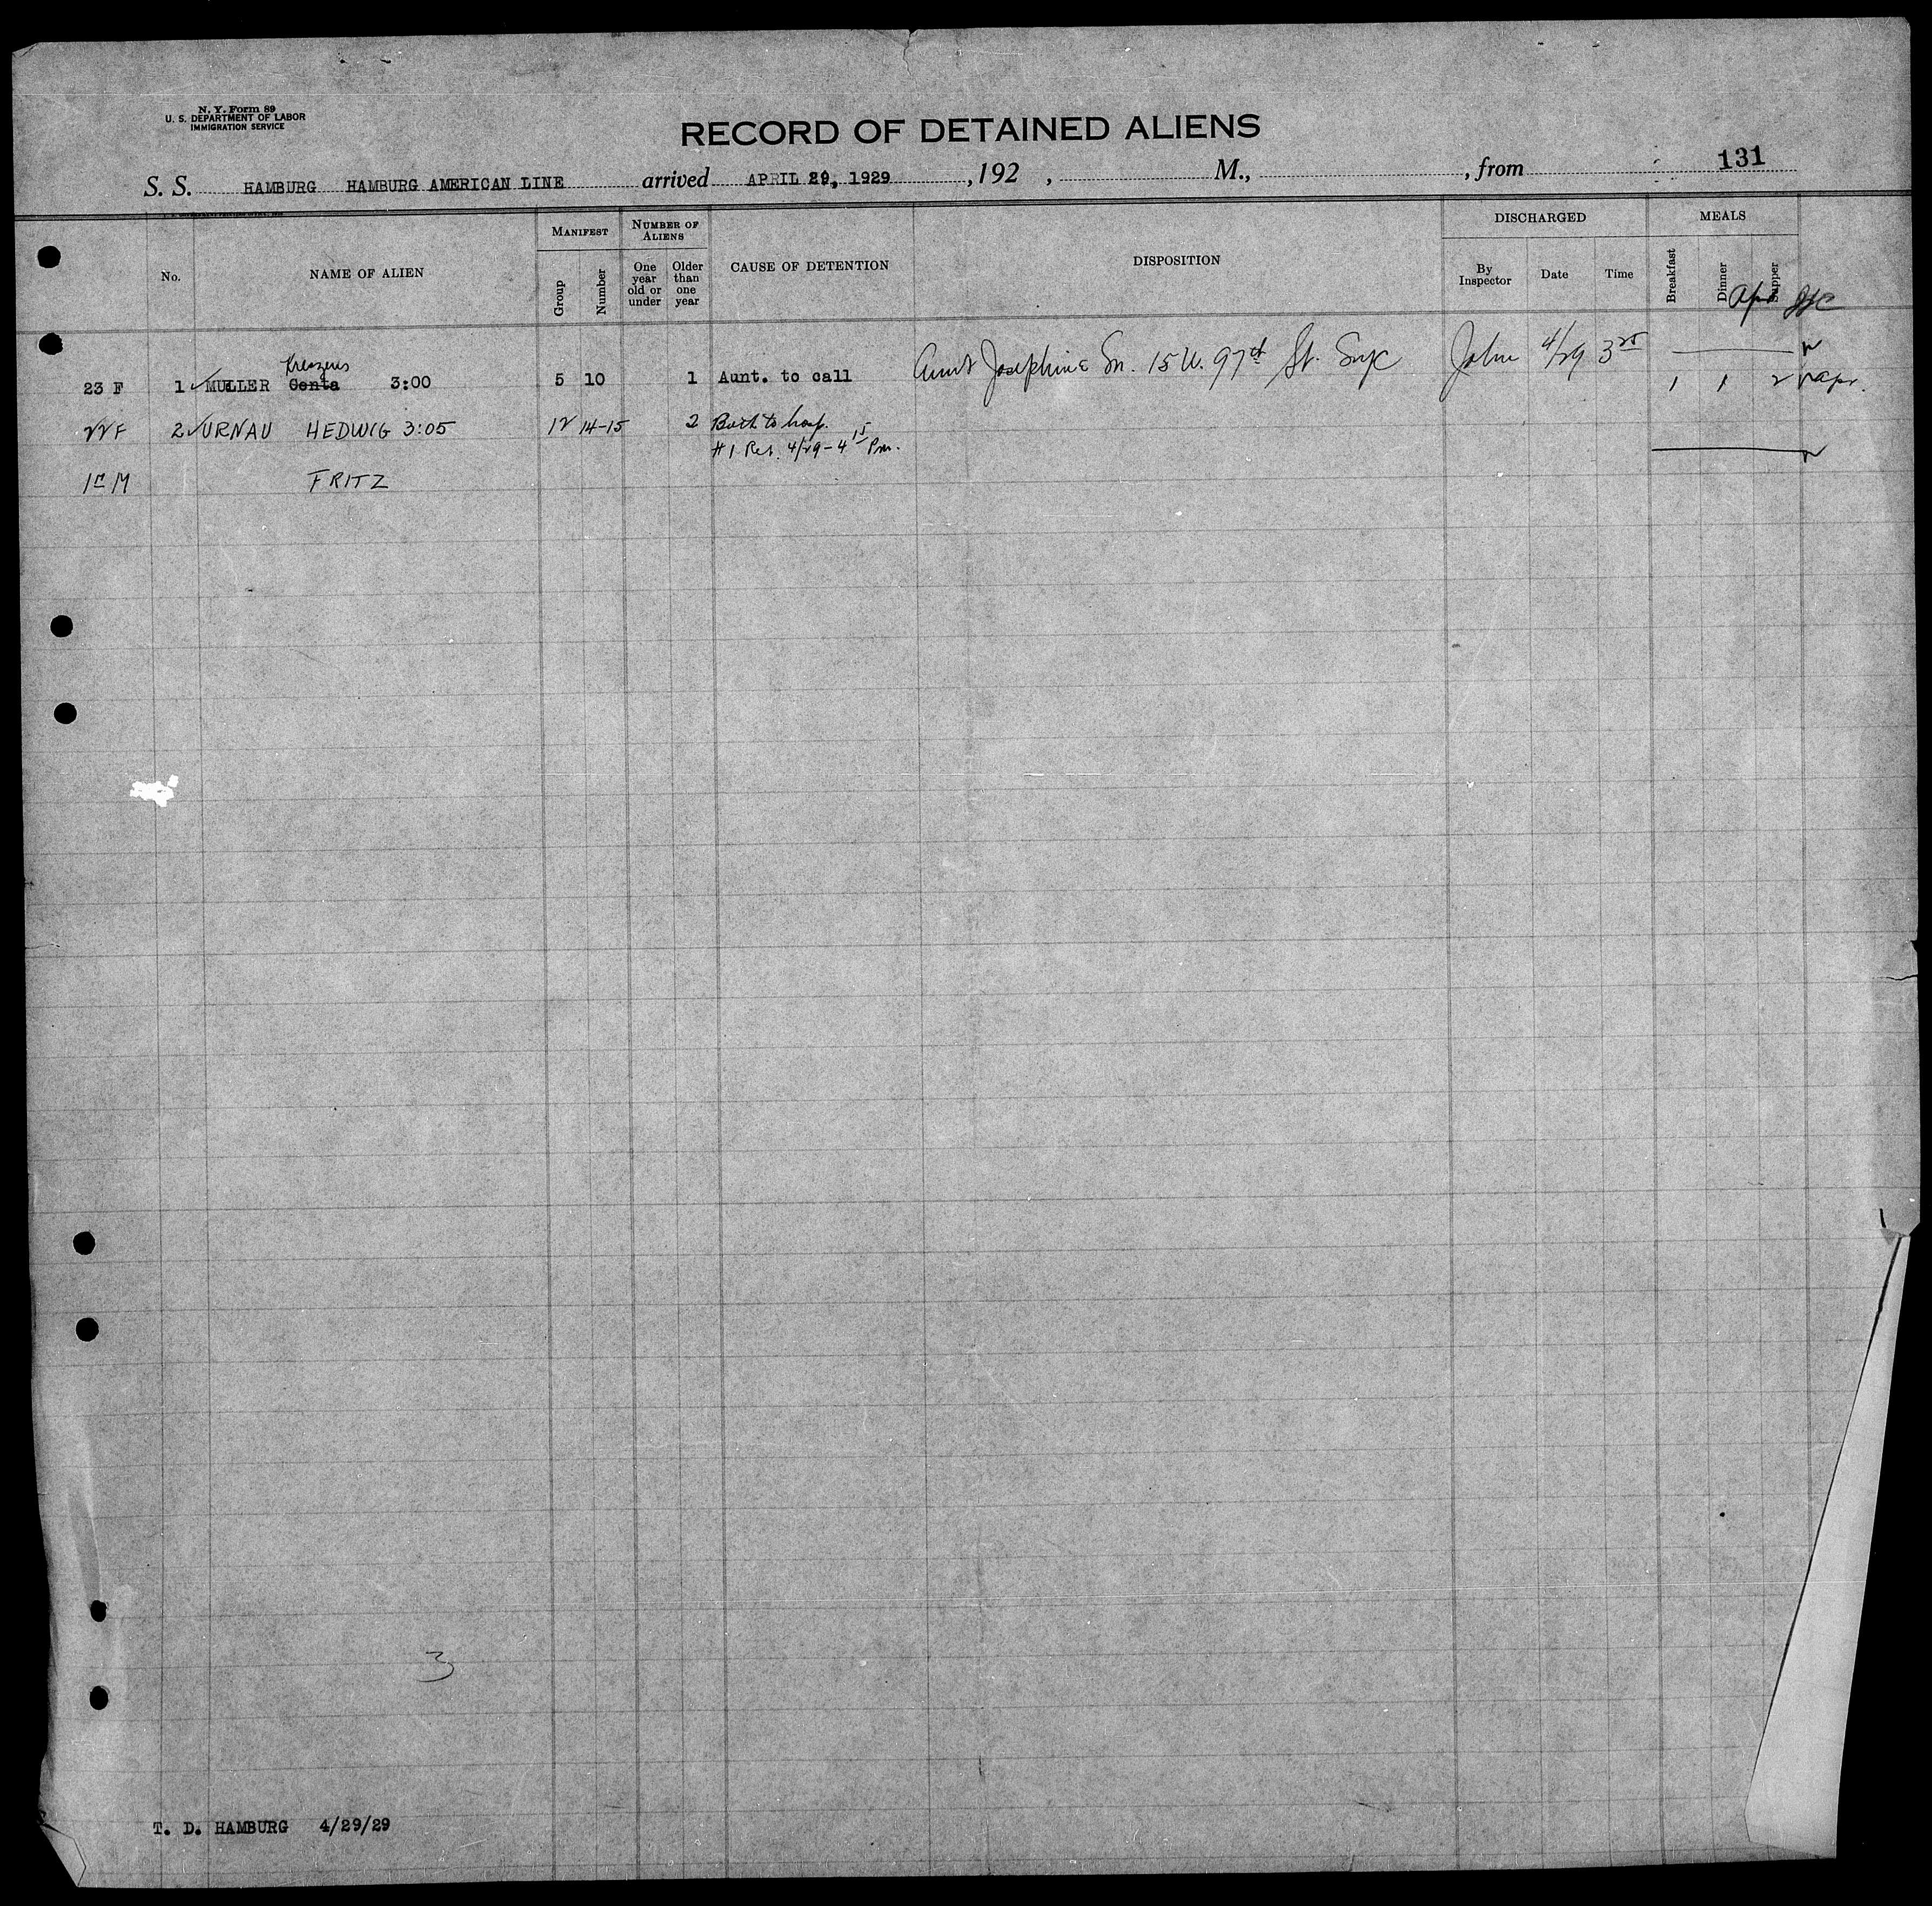 N. Y. Form 89
U. S. DEPARTMENT OF LABOR
IMMIGRATION SERVICE
RECORD OF DETAINED ALIENS
131
S. S. HAMBURG HAMBURG AMERICAN LINE arrived APRIL 29, 1929 , 192 , M., , from
No.
NAME OF ALIEN
MANIFEST
Group
Number
NUMBER OF ALIENS
One year old or under
Older than one year
CAUSE OF DETENTION
DISPOSITION
DISCHARGED
By Inspector
Date
Time
MEALS
Breakfast
Dinner
Supper
23 F 1 MULLER Centa 3:00 5 10 1 Aunt. to call Aunt Josephine Sn. 15 W. 97th St. John 4/29 3 25
1 1 2
22 F 2 URNAU HEDWIG 3:05 12 14-15 2 Both to hosp.
#1 Rel. 4/29 - 4 15 Pm.
M FRITZ
3
T. D. HAMBURG 4/29/29